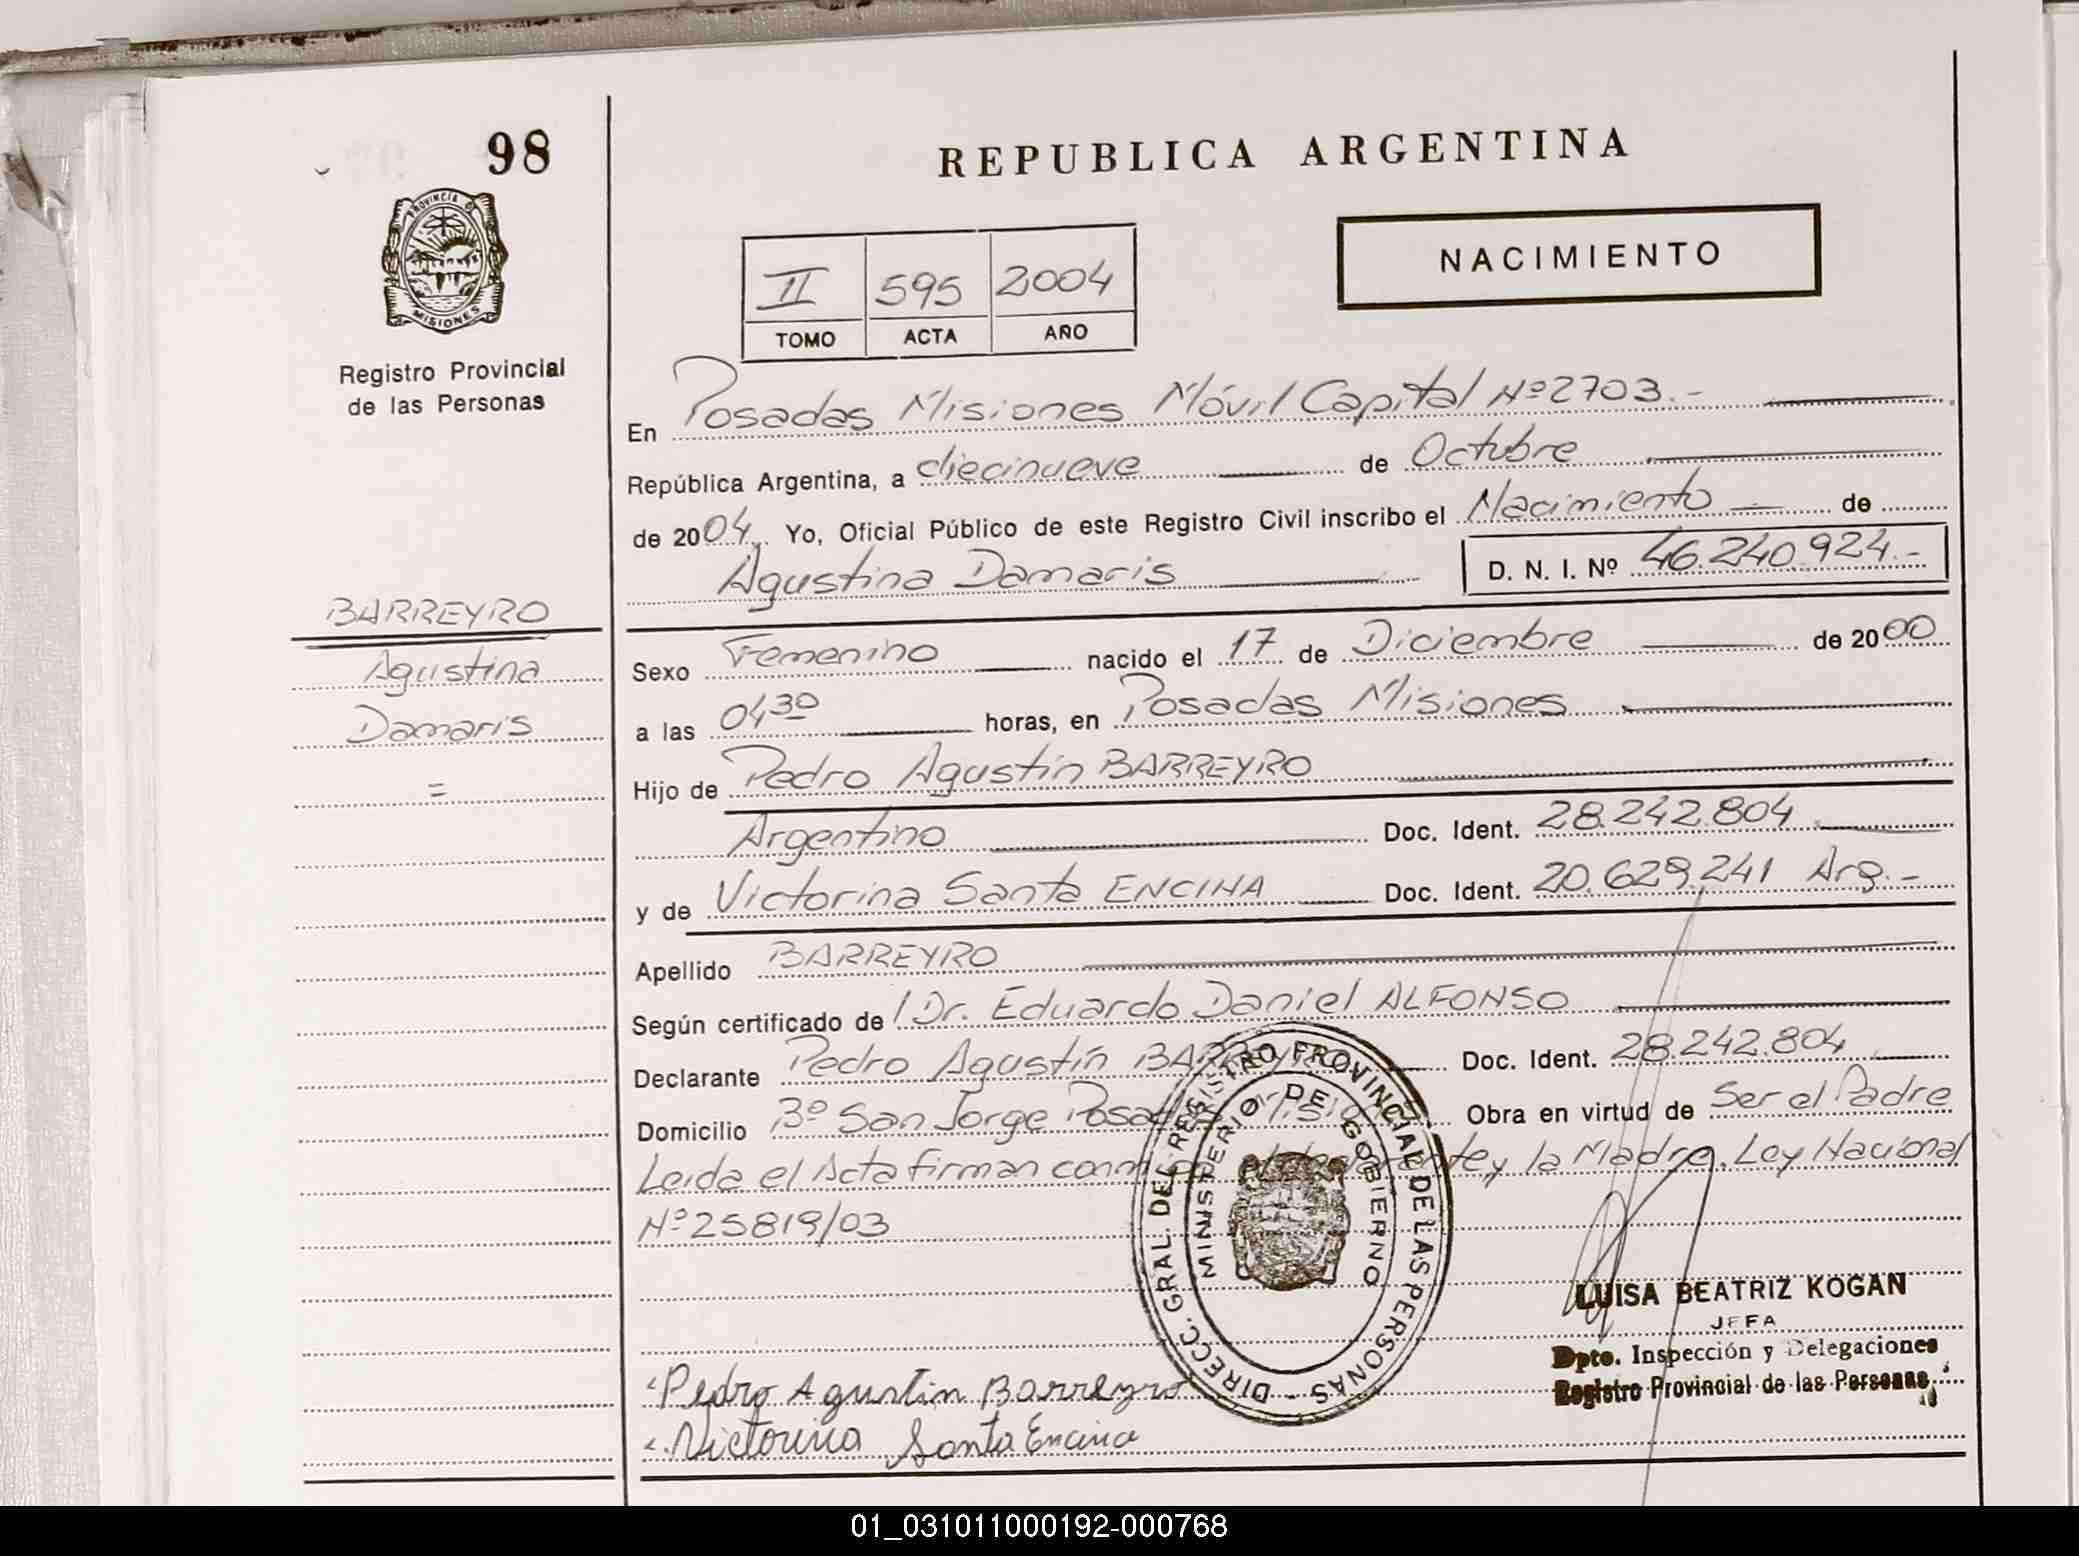 98
REPUBLICA ARGENTINA
PROVINCIA D
MISIONES
Registro Provincial
de las Personas
NACIMIENTO
II 595 2004
TOMO ACTA AÑO
En Posadas Misiones Móvil Capital Nº 2703.-
República Argentina, a diecinueve de Octubre
de 2004. Yo, Oficial Público de este Registro Civil inscribo el Nacimiento de
Agustina Damaris D. N. I. Nº 46.240.924.-
BARREYRO
Agustina
Damaris
=
Sexo Femenino nacido el 17 de Diciembre de 2000
a las 04³⁰ horas, en Posadas Misiones
Hijo de Pedro Agustín BARREYRO
Argentino Doc. Ident. 28.242.804
y de Victorina Santa ENCINA Doc. Ident. 20.629.241 Arg.-
Apellido BARREYRO
Según certificado de / Dr. Eduardo Daniel ALFONSO
Declarante Pedro Agustín BARREYRO Doc. Ident. 28.242.804
Domicilio Bº San Jorge Posadas Misiones Obra en virtud de Ser el Padre
Leida el Acta firman conmigo el declarante y la Madre. Ley Nacional
Nº 25819/03
DIRECC. GRAL. DEL REGISTRO PROVINCIAL DE LAS PERSONAS -
MINISTERIO DE GOBIERNO
LUISA BEATRIZ KOGAN
JEFA
Dpto. Inspección y Delegaciones
Registro Provincial de las Personas
Pedro Agustin Barreyro
Victorina Santa Encina
01_031011000192-000768